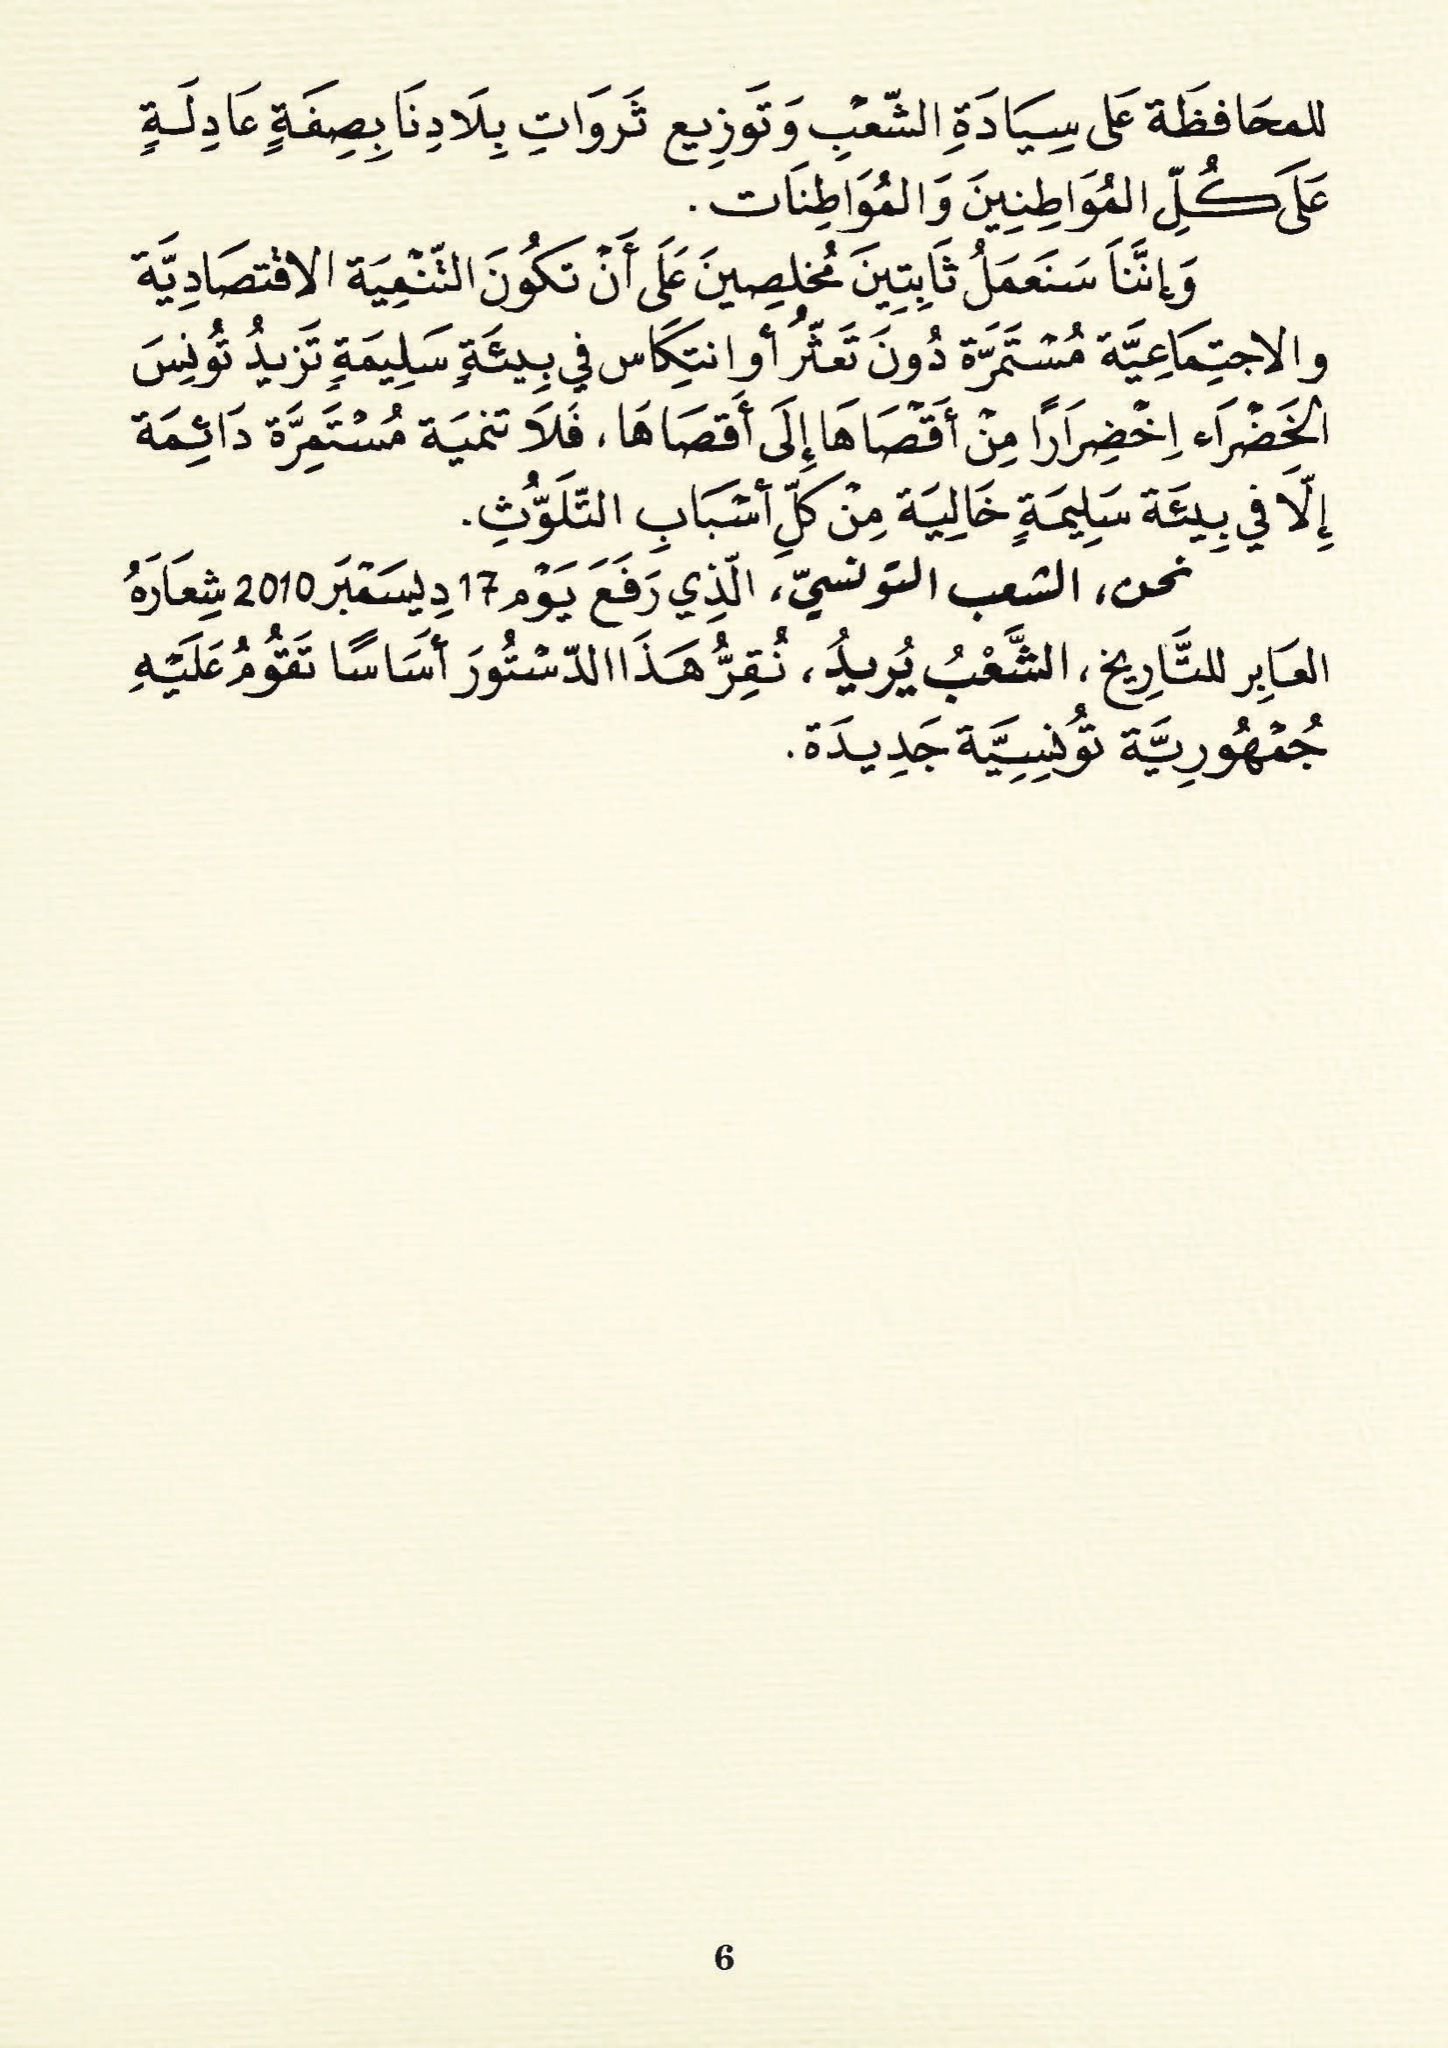 للمحَافظَة عَلى سِيَادَةِ الشّعْبِ وَتَوزِيع ثَروَاتِ بِلَادِنَا بِصِفَةٍ عَادِلَةٍ
عَلَى كُلِّ المُوَاطِنِينَ وَالمُوَاطِنَات.
وَإنَّنَا سَنَعمَلُ ثَابِتِينَ مُخلصِينَ عَلَى أَنْ تكُونَ التّنْمِيَة الاقتصَادِيَّة
والاجتِمَاعِيَّة مُسْتَمَرَّة دُونَ تَعَثّرُ أو انتِكَاس في بِيئَةٍ سَلِيمَةٍ تَزيدُ تُونِسَ
الخَضْرَاء اِخْضِرَارًا مِنْ أَقْصَاهَا إِلَى أَقصَاهَا، فَلاَ تنميَة مُسْتَمِرَّة دَائِمَة
إِلّا في بِيئَة سَلِيمَةٍ خَالِيَة مِنْ كلِّ أسْبَابِ التّلَوُّثِ.
نحن، الشعب التونسيّ، الّذِي رَفَعَ يَوْم 17 دِيسَمْبَر 2010 شِعَارَهُ
العَابِر للتَّارِيخ، الشَّعْبُ يُريدُ، نُقِرُّ هَذَا الدّسْتُورَ أسَاسًا تَقُومُ عَلَيْهِ
جُمْهُورِيَّة تُونِسِيَّة جَدِيدَة.
6